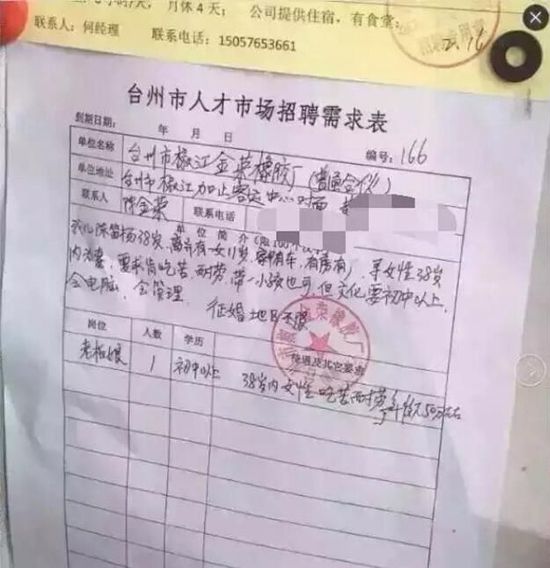 月休4天; 公司提供住宿, 有食堂;
联系人: 何经理 联系电话: 15057653661
2.16
台州市人才市场招聘需求表
到期日期: 年 月 日 编号: 166
单位名称 台州市椒江金荣橡胶厂(普通合伙)
单位地址 台州市椒江加止客运中心对面
联系人 陈金荣 联系电话
单位简介(限100个汉字)
38岁, 离异有一女11岁, 有车, 有房, 寻女性38岁
内为妻, 要求肯吃苦耐劳, 带一小孩也可, 但文化要初中以上,
会电脑, 会管理. 征婚地区不限
岗位 人数 学历 待遇及其它要求
老板娘 1 初中以上 38岁内女性吃苦耐劳年薪50万左右
荣橡胶厂